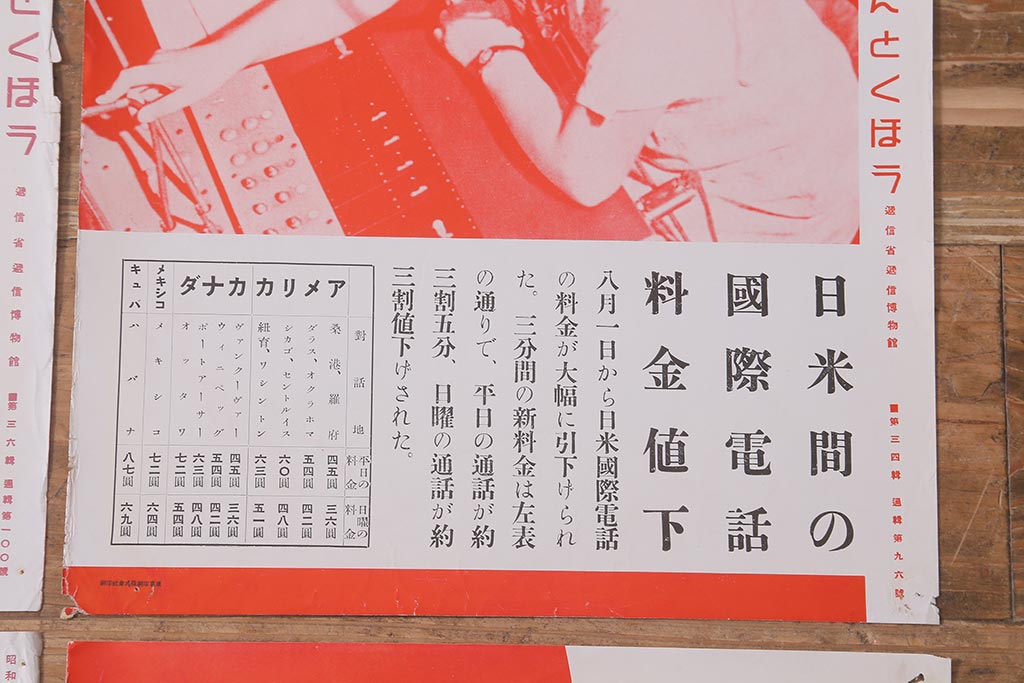 んとくほう
遞信省遞信博物館
■第三四輯 通輯第九六號
日米間の
國際電話
料金値下
八月一日から日米國際電話
の料金が大幅に引下げられ
た。三分間の新料金は左表
の通りで、平日の通話が約
三割五分、日曜の通話が約
三割値下げされた。
對話地 平日の料金 日曜の料金
アメリカ
桑港、羅府 四五圓 三六圓
ダラス、オクラホマ 五四圓 四二圓
シカゴ、セントルイス 六〇圓 四八圓
紐育、ワシントン 六三圓 五一圓
カナダ
ヴァンクーヴァー 四五圓 三六圓
ウィニペッグ 五四圓 四二圓
ポートアーサー 六三圓 四八圓
オッタワ 七二圓 五四圓
メキシコ メキシコ 七二圓 六四圓
キュバ ハバナ 八七圓 六九圓
とくほう
遞信省遞信博物館
■第三六輯 通輯第一〇〇號
昭和